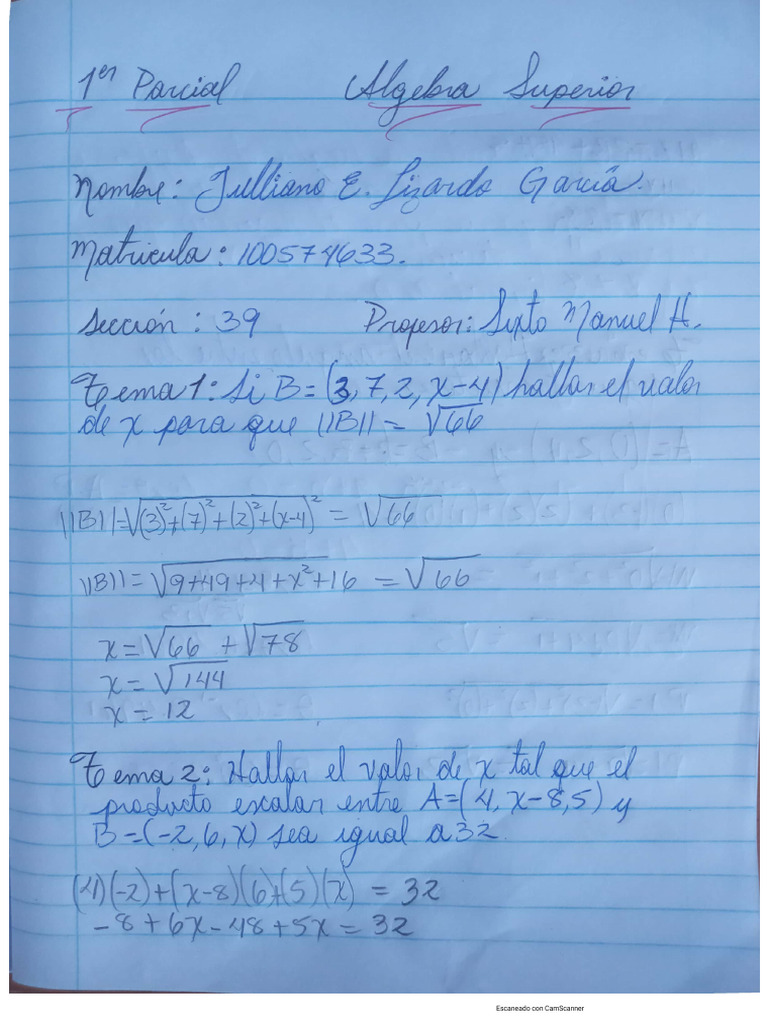 1er Parcial Algebra Superior
Nombre: Julliano E. Lizardo García.
Matricula: 100574633.
Sección: 39 Profesor: Sixto Manuel H.
Tema 1: Si B=(3,7,2,x-4) hallar el valor
de x para que ||B|| = √66
||B||=√(3)²+(7)²+(2)²+(x-4)² = √66
||B||=√9+49+4+x²+16 = √66
x=√66 + √78
x=√144
x=12
Tema 2: Hallar el valor de x tal que el
producto escalar entre A=(4,x-8,5) y
B=(-2,6,x) sea igual a 32.
(4)(-2)+(x-8)(6)+(5)(x) = 32
-8+6x-48+5x=32
Escaneado con CamScanner